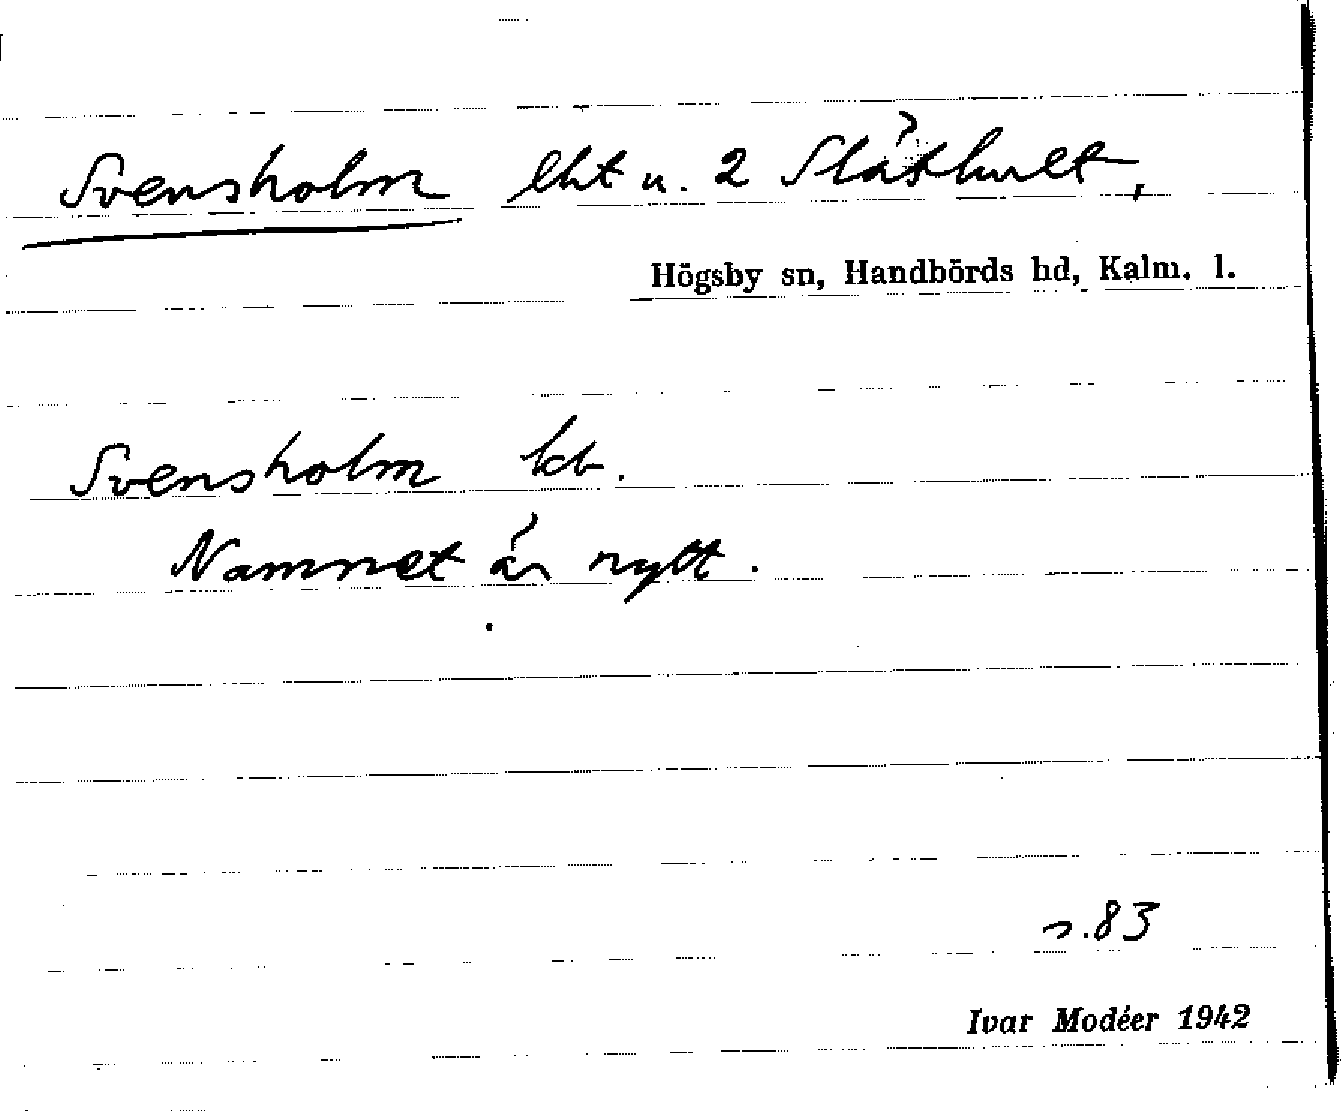 Svensholm lht u. 2 Släthult,
Högsby sn, Handbörds hd, Kalm. l.
Svensholm kb.
Namnet är nytt.
s. 83
Ivar Modéer 1942